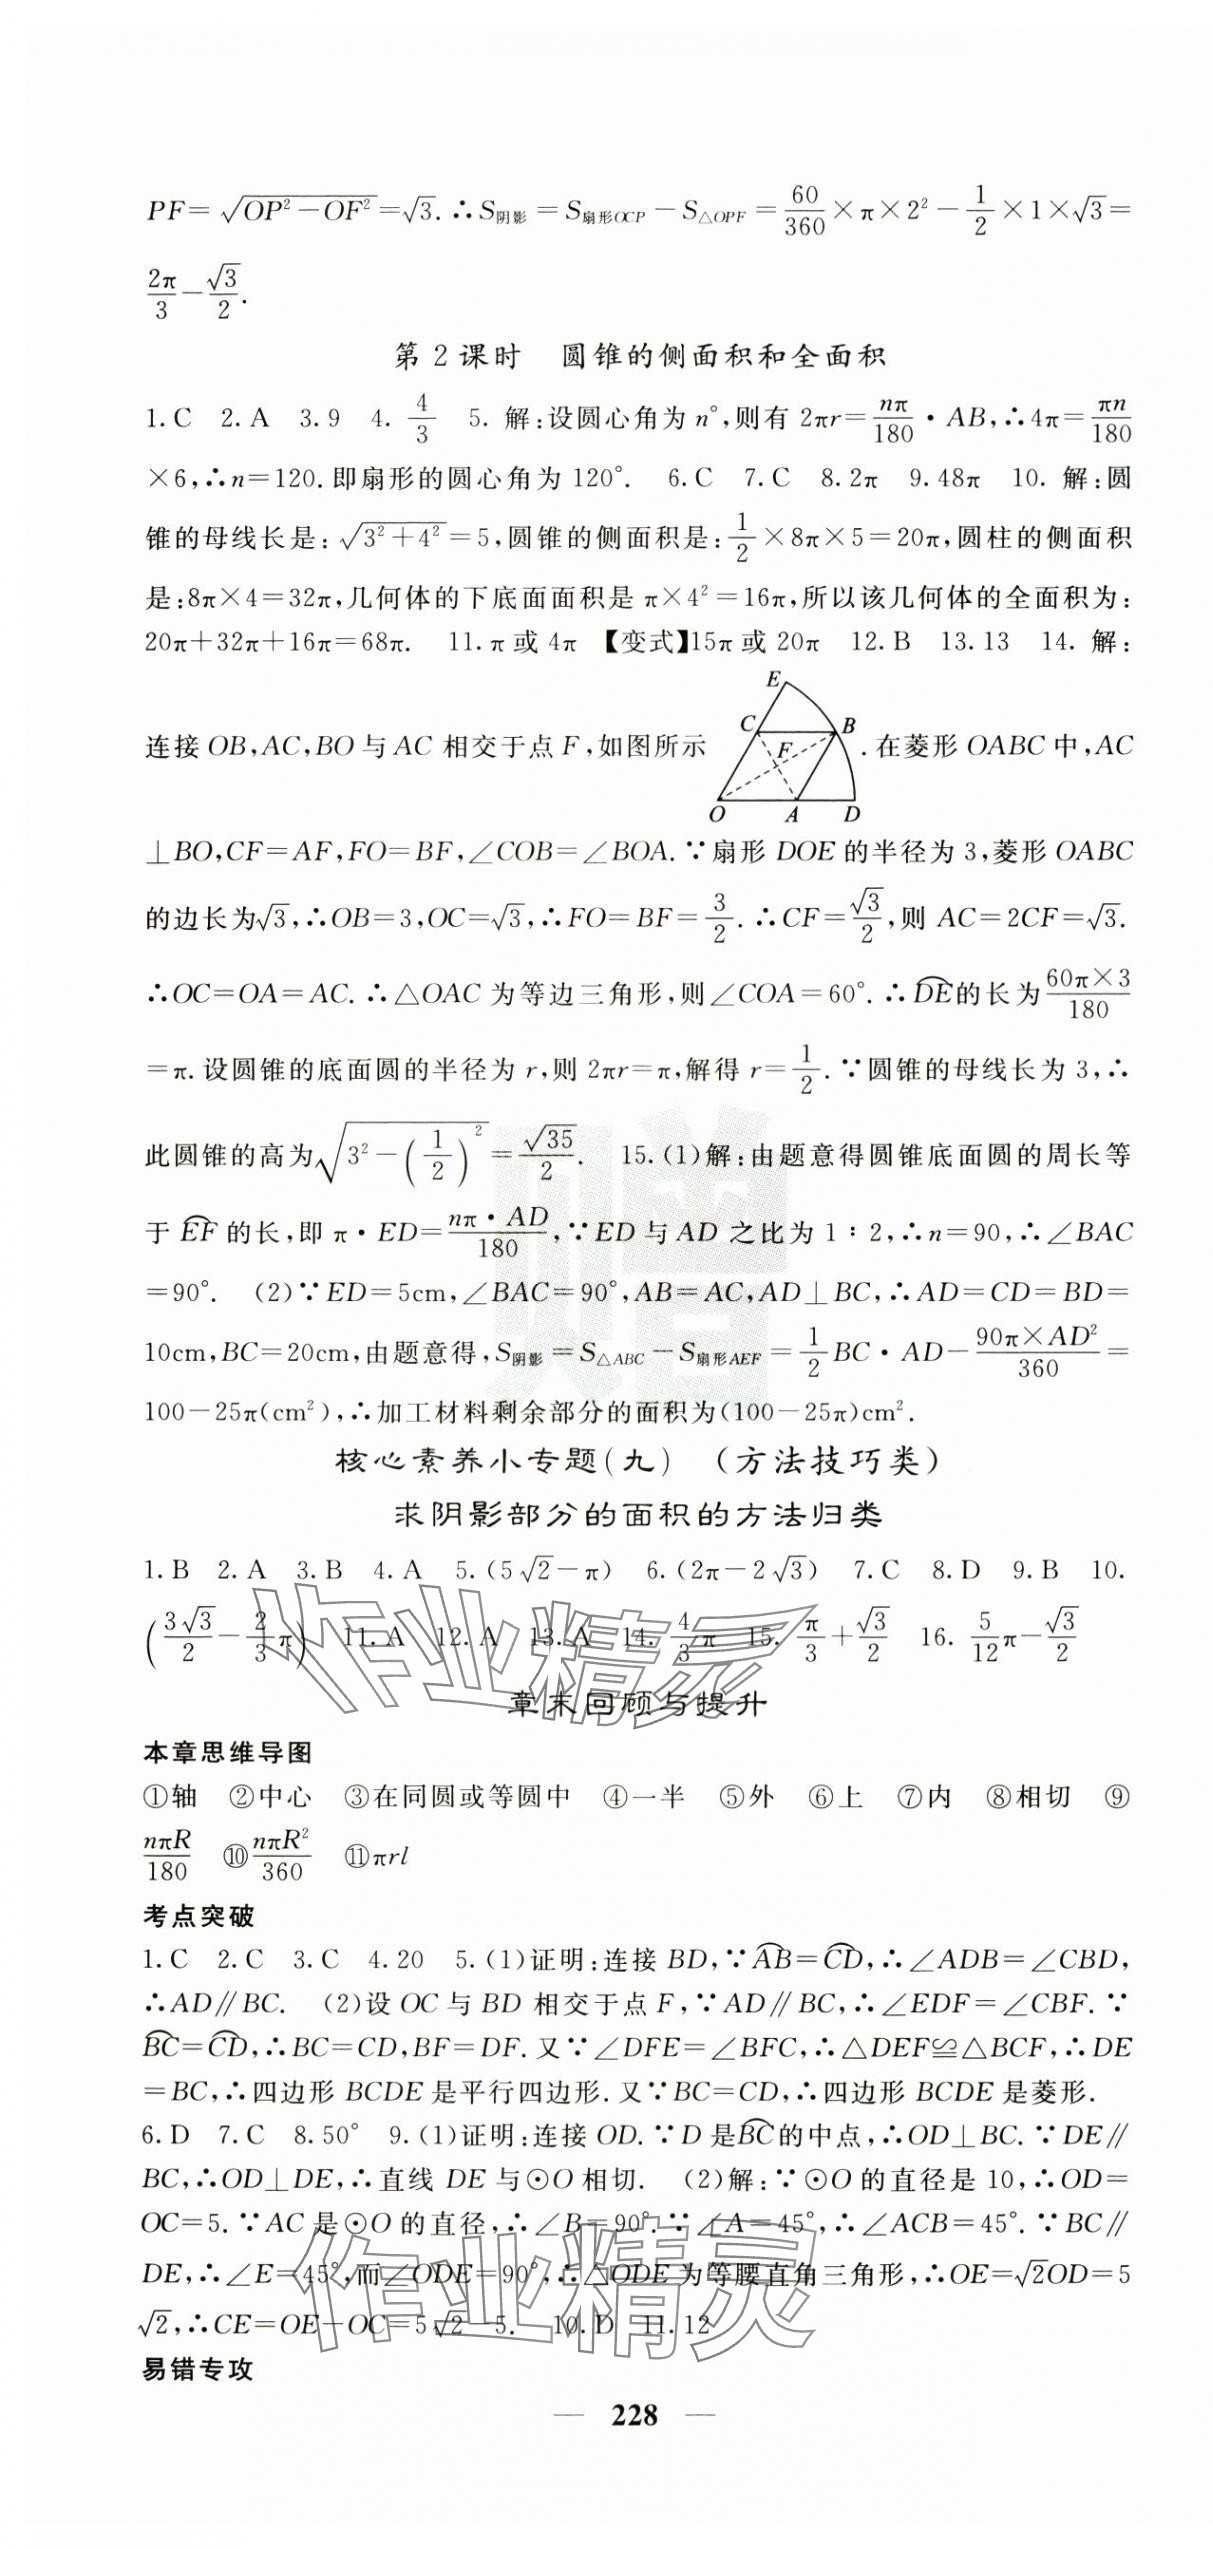 PF=√(OP²-OF²)=√3.∴S阴影=S扇形OCP-S△OPF=60/360×π×2²-1/2×1×√3=
2π/3-√3/2.
第2课时 圆锥的侧面积和全面积
1.C 2.A 3.9 4. 4/3 5. 解:设圆心角为n°,则有2πr=nπ/180·AB,∴4π=πn/180
×6,∴n=120.即扇形的圆心角为120°. 6.C 7.C 8.2π 9.48π 10. 解:圆
锥的母线长是:√(3²+4²)=5,圆锥的侧面积是:1/2×8π×5=20π,圆柱的侧面积
是:8π×4=32π,几何体的下底面面积是π×4²=16π,所以该几何体的全面积为:
20π+32π+16π=68π. 11.π或4π 【变式】15π或20π 12.B 13.13 14. 解:
连接OB,AC,BO与AC相交于点F,如图所示 E C B F O A D .在菱形OABC中,AC
⊥BO,CF=AF,FO=BF,∠COB=∠BOA.∵扇形DOE的半径为3,菱形OABC
的边长为√3,∴OB=3,OC=√3,∴FO=BF=3/2.∴CF=√3/2,则AC=2CF=√3.
∴OC=OA=AC.∴△OAC为等边三角形,则∠COA=60°.∴⌒DE的长为60π×3/180
=π.设圆锥的底面圆的半径为r,则2πr=π,解得r=1/2.∵圆锥的母线长为3,∴
此圆锥的高为√(3²-(1/2)²)=√35/2. 15.(1)解:由题意得圆锥底面圆的周长等
于⌒EF的长,即π·ED=nπ·AD/180,∵ED与AD之比为1∶2,∴n=90,∴∠BAC
=90°. (2)∵ED=5cm,∠BAC=90°,AB=AC,AD⊥BC,∴AD=CD=BD=
10cm,BC=20cm,由题意得,S阴影=S△ABC-S扇形AEF=1/2BC·AD-90π×AD²/360=
100-25π(cm²),∴加工材料剩余部分的面积为(100-25π)cm².
核心素养小专题(九) (方法技巧类)
求阴影部分的面积的方法归类
1.B 2.A 3.B 4.A 5.(5√2-π) 6.(2π-2√3) 7.C 8.D 9.B 10.
(3√3/2-2/3π) 11.A 12.A 13.A 14. 4/3π 15. π/3+√3/2 16. 5/12π-√3/2
章末回顾与提升
本章思维导图
①轴 ②中心 ③在同圆或等圆中 ④一半 ⑤外 ⑥上 ⑦内 ⑧相切 ⑨
nπR/180 ⑩nπR²/360 ⑪πrl
考点突破
1.C 2.C 3.C 4.20 5.(1)证明:连接BD,∵⌒AB=⌒CD,∴∠ADB=∠CBD,
∴AD∥BC. (2)设OC与BD相交于点F,∵AD∥BC,∴∠EDF=∠CBF.∵
⌒BC=⌒CD,∴BC=CD,BF=DF.又∵∠DFE=∠BFC,∴△DEF≌△BCF,∴DE
=BC,∴四边形BCDE是平行四边形.又∵BC=CD,∴四边形BCDE是菱形.
6.D 7.C 8.50° 9.(1)证明:连接OD.∵D是⌒BC的中点,∴OD⊥BC.∵DE∥
BC,∴OD⊥DE,∴直线DE与⊙O相切. (2)解:∵⊙O的直径是10,∴OD=
OC=5.∵AC是⊙O的直径,∴∠B=90°.∵∠A=45°,∴∠ACB=45°.∵BC∥
DE,∴∠E=45°,而∠ODE=90°,∴△ODE为等腰直角三角形,∴OE=√2OD=5
√2,∴CE=OE-OC=5√2-5. 10.D 11.12
易错专攻
— 228 —
作业精灵
作业精灵
赠